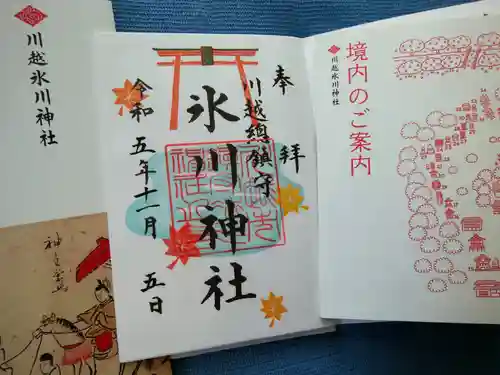 川越氷川神社
神之栄
奉拝
川越總鎮守
氷川神社
令和五年十一月五日
境内のご案内
川越氷川神社